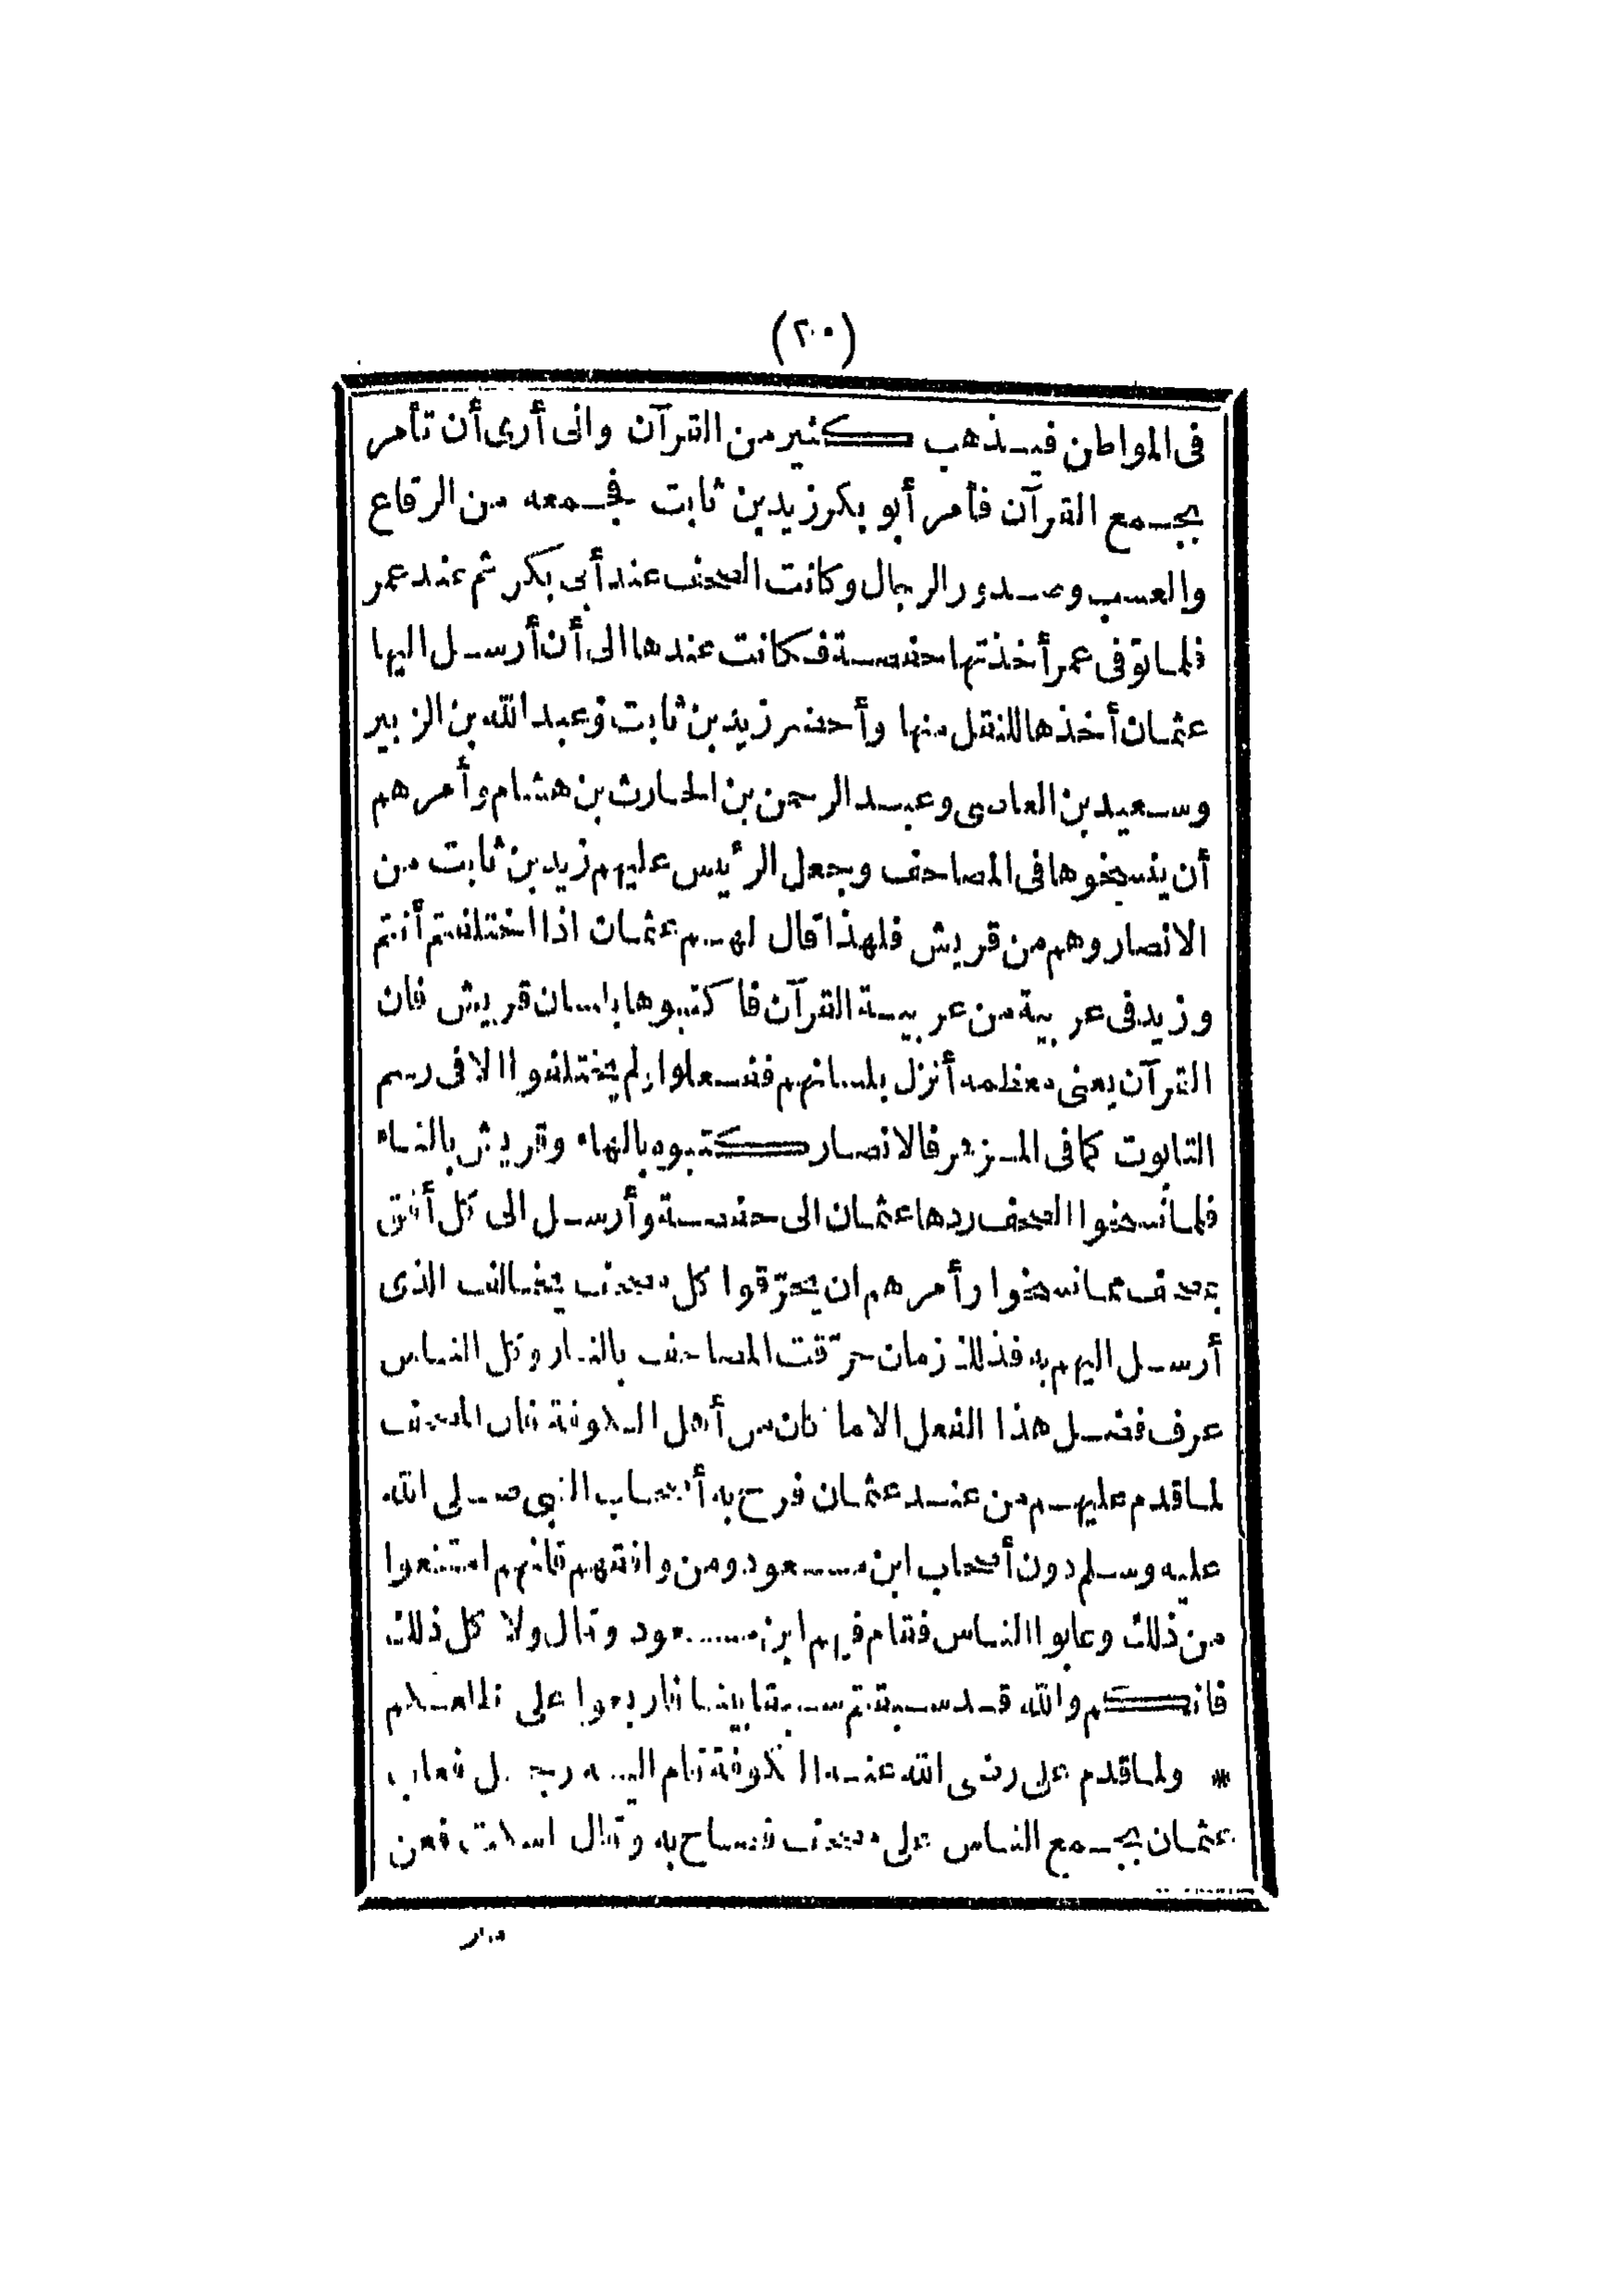 (٢٠٠)
فى المواطن فيذهب كثير من القرآن وانى أرى أن تأمر
بجمع القرآن فأمر أبو بكر زيد بن ثابت فجمعه من الرقاع
والعسب وصدور الرجال وكانت الصحف عند أبى بكر ثم عند عمر
فلما توفى عمر أخذتها حفصة فكانت عندها الى أن أرسل اليها
عثمان أخذها للنقل منها وأحضر زيد بن ثابت وعبد الله بن الزبير
وسعيد بن العاصى وعبد الرحمن بن الحارث بن هشام وأمرهم
أن ينسخوها فى المصاحف وجعل الرئيس عليهم زيد بن ثابت من
الانصار وهم من قريش فلهذا قال لهم عثمان اذا اختلفتم أنتم
وزيد فى عربية من عربية القرآن فاكتبوها بلسان قريش فان
القرآن يعنى معظمه أنزل بلسانهم ففعلوا ولم يختلفوا الا فى رسم
التابوت كما فى المزهر فالانصار كتبوه بالهاء وقريش بالتاء
فلما نسخوا الصحف ردها عثمان الى حفصة وأرسل الى كل أفق
بمصحف مما نسخوا وأمرهم ان يحرّقوا كل مصحف يخالف الذى
أرسل اليهم به فذلك زمان حرّقت المصاحف بالنار وكل الناس
عرف فضل هذا الفعل الا ما كان من أهل الكوفة فان المصحف
لما قدم عليهم من عند عثمان فرح به أصحاب النبى صلى الله
عليه وسلم دون أصحاب ابن مسعود ومن وافقهم فانهم امتنعوا
من ذلك وعابوا الناس فقام فيهم ابن مسعود وقال ولا كل ذلك
فانكم والله قد سبقتم سبقا بينا فاربعوا على ظلعكم
* ولما قدم على رضى الله عنه الكوفة قام اليه رجل فعاب
عثمان بجمع الناس على مصحف فصاح به وقال اسكت فعن